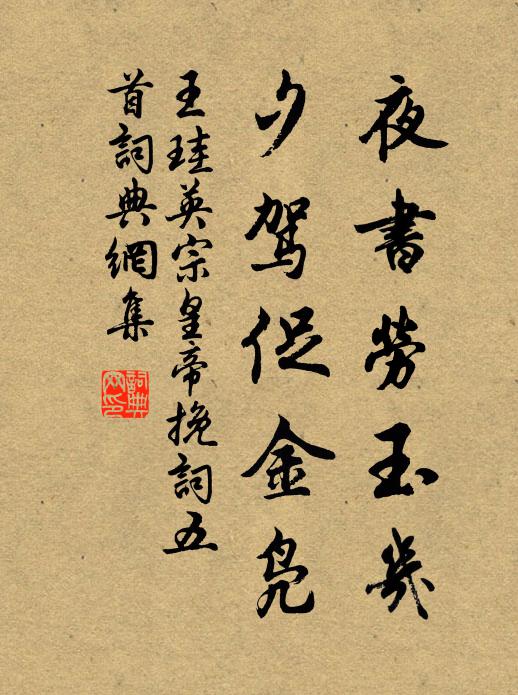 夜書勞玉幾
夕駕促金鳧
王珪英宗皇帝挽詞五
首詞典網集
詞典
网印